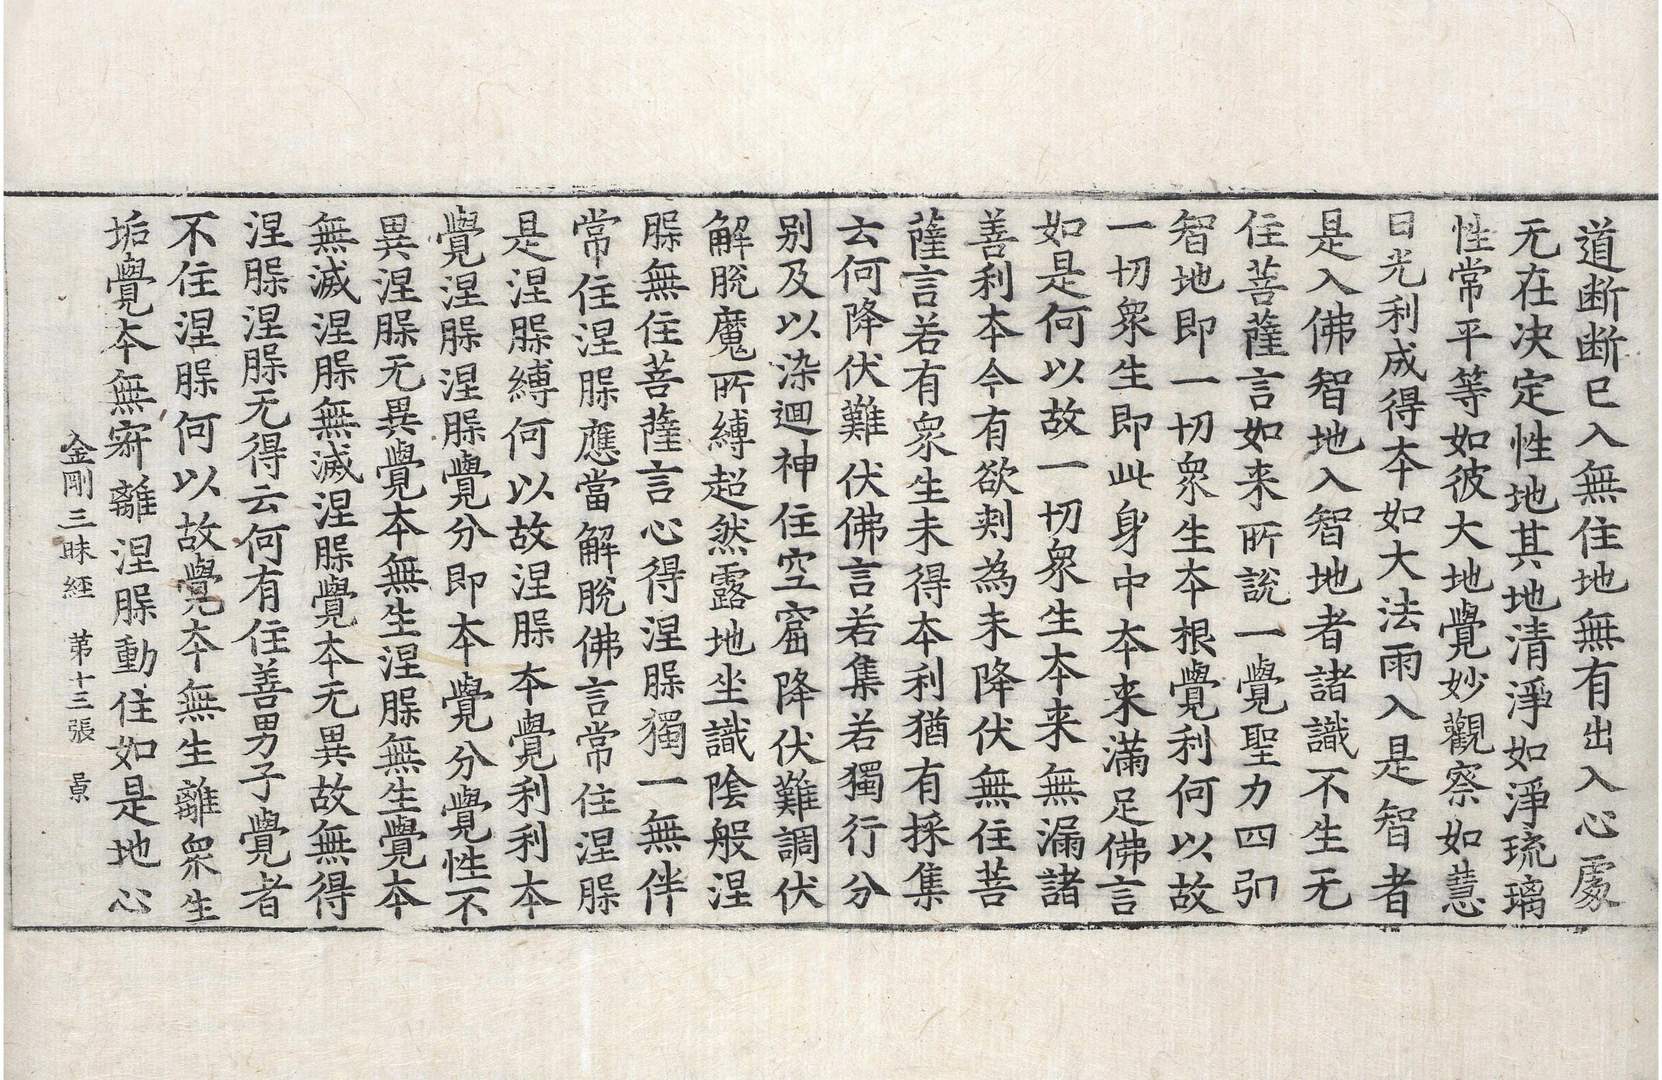 道断断已入無住地無有出入心處
无在决定性地其地清淨如淨琉璃
性常平等如彼大地覺妙觀察如慧
日光利成得夲如大法雨入是智者
是入佛智地入智地者諸識不生无
住菩薩言如来所說一覺聖力四弘
智地即一切衆生夲根覺利何以故
一切衆生即此身中夲来滿足佛言
如是何以故一切衆生夲来無漏諸
善利夲今有欲刾為未降伏無住菩
薩言若有衆生未得夲利猶有採集
云何降伏難伏佛言若集若獨行分
别及以染迴神住空窟降伏難調伏
解脫魔所縛超然露地坐識隂般涅
䐗無住菩薩言心得涅䐗獨一無伴
常住涅䐗應當解脫佛言常住涅䐗
是涅䐗縛何以故涅䐗夲覺利利夲
覺涅䐗涅䐗覺分即夲覺分覺性不
異涅䐗无異覺夲無生涅䐗無生覺夲
無滅涅䐗無滅涅䐗覺夲无異故無得
涅䐗涅䐗无得云何有住善男子覺者
不住涅䐗何以故覺夲無生離衆生
垢覺夲無㝎離涅䐗動住如是地心
金剛三昧經 苐十三張 景